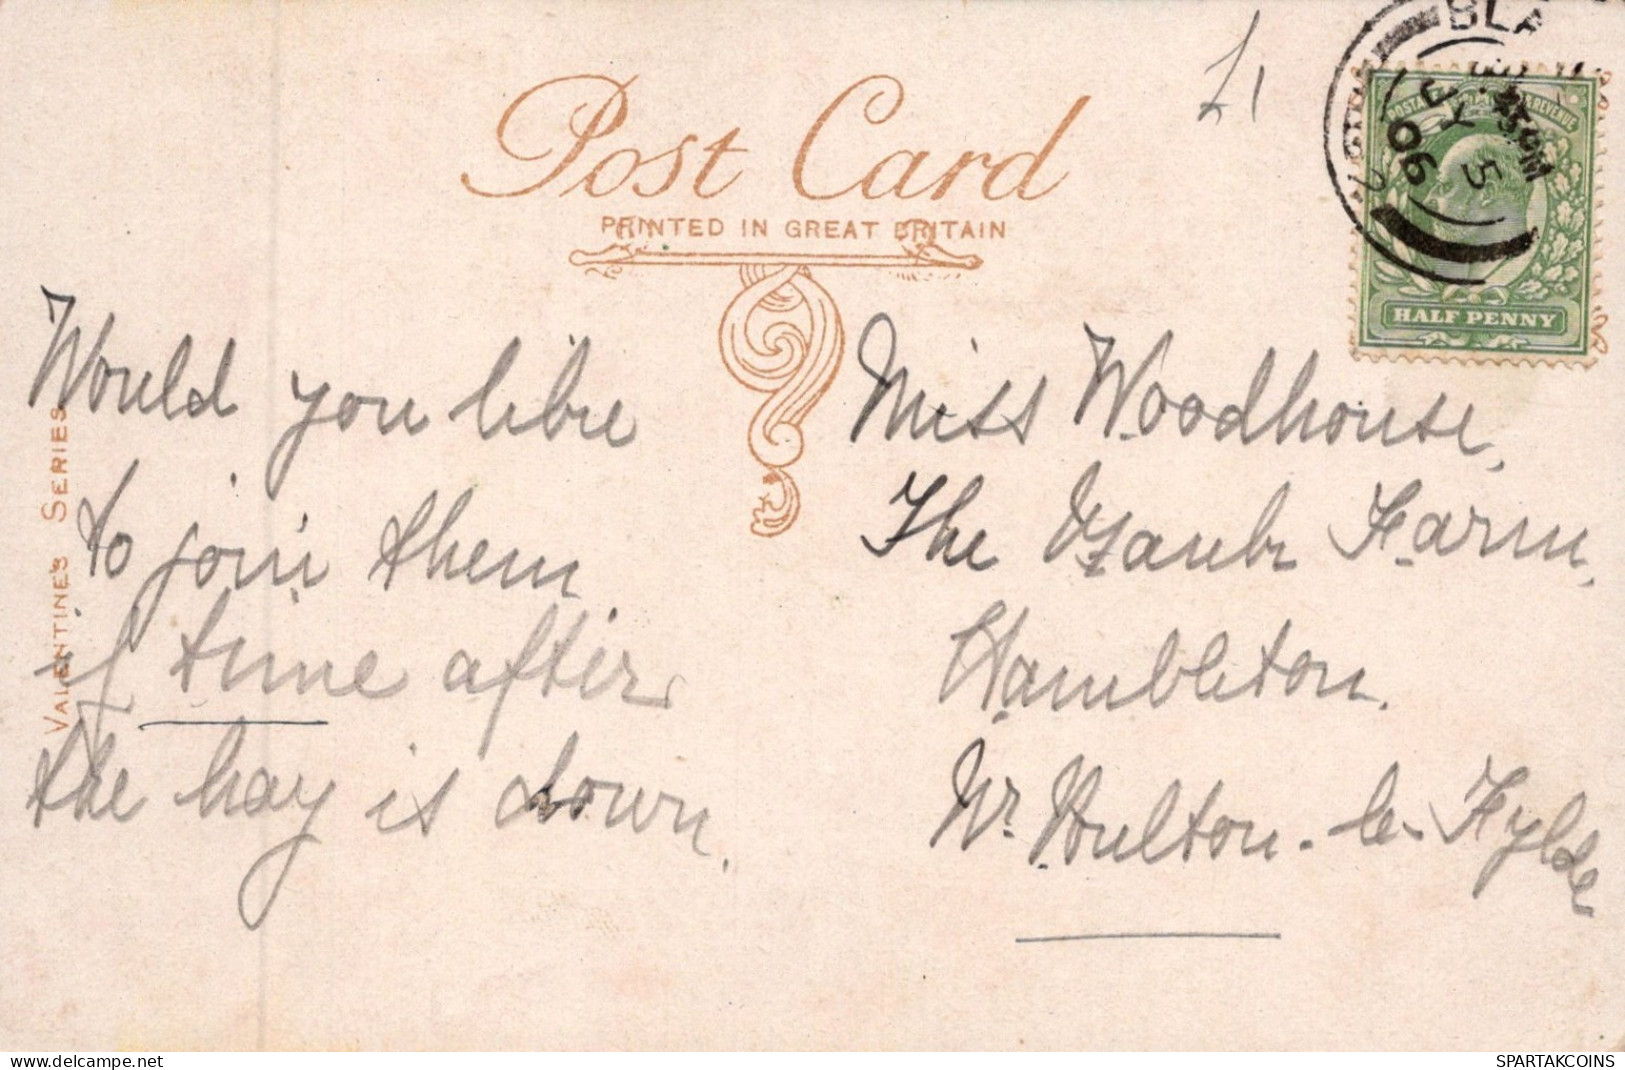 £1
BLA
5
06
POSTAGE & REVENUE
HALF PENNY
Post Card
PRINTED IN GREAT BRITAIN
VALENTINE'S SERIES
Would you like
to join them
if time after
the hay is down.
Miss Woodhouse,
The Farm,
Hambleton.
Nr. Poulton-le-Fylde
SPARTAKCOINS
www.delcampe.net